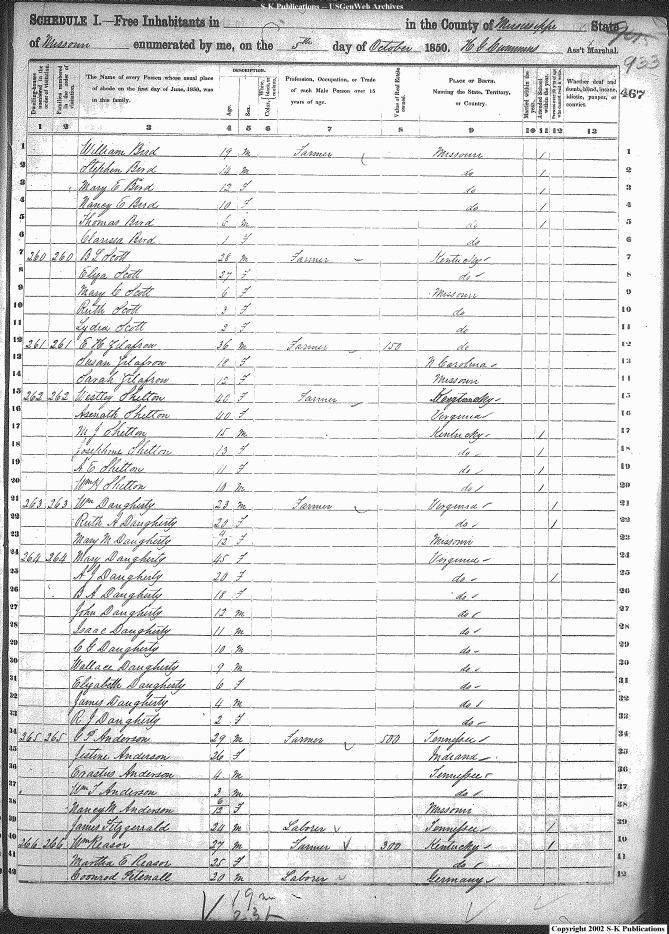 S-K Publications -- USGenWeb Archives
SCHEDULE I.—Free Inhabitants in in the County of Mississippi State
of Missouri enumerated by me, on the 5th day of October 1850. Ass't Marshal.
933
467
Dwelling-houses numbered in the order of visitation.
Families numbered in the order of visitation.
The Name of every Person whose usual place of abode on the first day of June, 1850, was in this family.
DESCRIPTION.
Age.
Sex.
Color, White, black, or mulatto.
Profession, Occupation, or Trade of each Male Person over 15 years of age.
Value of Real Estate owned.
PLACE OF BIRTH. Naming the State, Territory, or Country.
Married within the year.
Attended School within the year.
Whether deaf and dumb, blind, insane, idiotic, pauper, or convict.
1 2 3 4 5 6 7 8 9 10 11 12 13
1 William Bird 19 m Farmer Missouri / 1
2 Stephen Bird 14 m do / 2
3 Mary E Bird 12 F do / 3
4 Nancy C Bird 10 F do / 4
5 Thomas Bird 6 m do / 5
6 Clarissa Bird 1 F do 6
7 260 260 B L Scott 28 m Farmer Kentucky 7
8 Eliza Scott 27 F do 8
9 Mary C Scott 6 F Missouri 9
10 Ruth Scott 3 F do 10
11 Lydia Scott 2 F do 11
12 261 261 E H 36 m Farmer 150 do 12
13 Susan 18 F N Carolina 13
14 Sarah 12 F Missouri 14
15 262 262 Westley Shelton 40 F Farmer Kentucky 15
16 Asenath Shelton 40 F Virginia 16
17 M J Shelton 15 m Kentucky / 17
18 Josephine Shelton 13 F do / 18
19 A E Shelton 11 F do / 19
20 Wm H Shelton 10 m do / 20
21 263 263 Wm Daugherty 23 m Farmer Virginia / 21
22 Ruth A Daugherty 20 F do / 22
23 Mary M Daugherty 9/12 F Missouri 23
24 264 264 Mary Daugherty 45 F Virginia 24
25 A J Daugherty 20 F do / 25
26 B A Daugherty 18 F do 26
27 John Daugherty 12 m do 27
28 Isaac Daugherty 11 m do 28
29 C G Daugherty 10 m do 29
30 Wallace Daugherty 9 m do 30
31 Elizabeth Daugherty 6 F do 31
32 James Daugherty 4 m do 32
33 R J Daugherty 2 F do 33
34 265 265 C P Anderson 29 m Farmer 500 Tennessee 34
35 Justine Anderson 26 F Indiana 35
36 Erastus Anderson 4 m Tennessee 36
37 Wm T Anderson 3 m do 37
38 Nancy M Anderson 6/12 F Missouri 38
39 James Fitzgerrald 24 m Laborer Tennessee / 39
40 266 266 Wm Reasor 27 m Farmer 300 Kentucky / 40
41 Martha E Reasor 25 F do 11
42 Coonrod 20 m Laborer Germany 12
19 m
23 F
Copyright 2002 S-K Publications